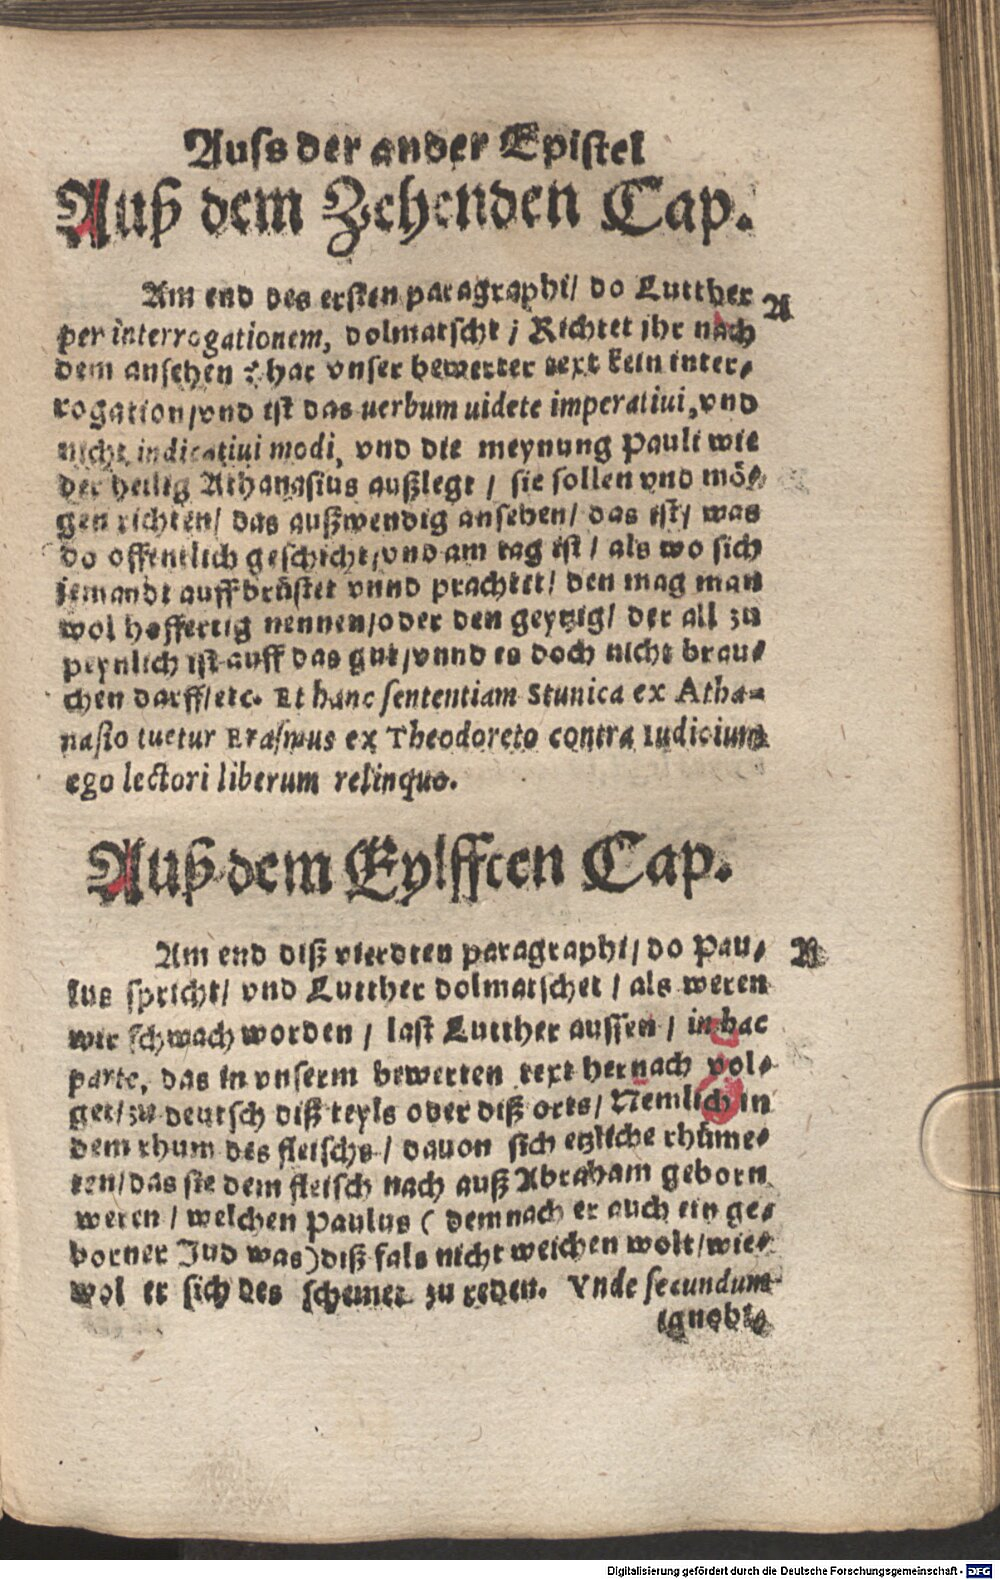 Auss der ander Epistel
Auß dem Zehenden Cap.
Am end des ersten paragraphi/ do Lutther A
per interrogationem, dolmatscht / Richtet ihr nach
dem ansehen ? hat vnser bewerter text kein inter⸗
rogation/vnd ist das uerbum uidete imperatiui, vnd
nicht indicatiui modi, vnd die meynung Pauli wie
der heilig Athanasius außlegt / sie sollen vnd mö⸗
gen richten/ das außwendig ansehen/ das ist/ was
do offentlich geschicht/vnd am tag ist / als wo sich
iemandt auffbrüstet vnnd prachtet/ den mag man
wol hoffertig nennen/oder den geytzig/ der all zu
peynlich ist auff das gut/vnnd es doch nicht brau⸗
chen darff/etc. Et hanc sententiam Stunica ex Atha-
nasio tuetur Erasmus ex Theodoreto contra Iudicium
ego lectori liberum relinquo.
Auß dem Eylfften Cap.
Am end diß vierdten paragraphi/ do Pau⸗ B
lus spricht/ vnd Lutther dolmatschet / als weren
wir schwach worden / last Lutther aussen / in hac
parte, das in vnserm bewerten text hernach vol⸗
get/zu deutsch diß teyls oder diß orts/ Nemlich in
dem rhum des fleischs / dauon sich etzliche rhüme⸗
ten/das sie dem fleisch nach auß Abraham geborn
weren / welchen Paulus ( demnach er auch ein ge⸗
borner Jud was) diß fals nicht weichen wolt/wie⸗
wol er sich des schemet zu reden. Vnde secundum
ignobi⸗
Digitalisierung gefördert durch die Deutsche Forschungsgemeinschaft - DFG